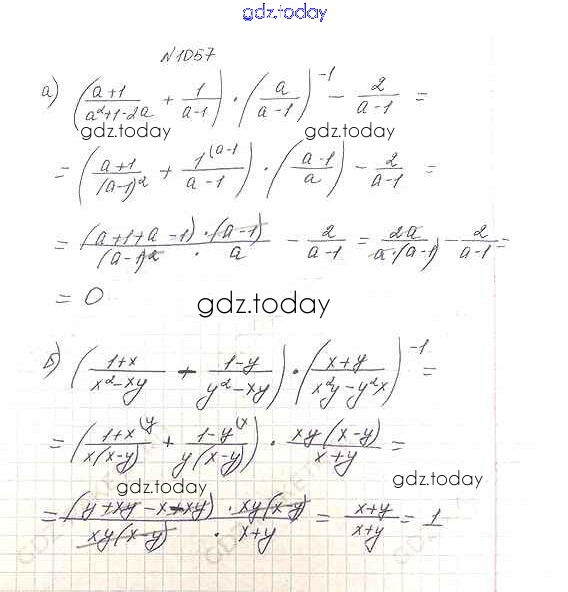 gdz.today
N1057
а) ((a+1)/(a²+1-2a) + 1/(a-1)) · (a/(a-1))⁻¹ - 2/(a-1) =
gdz.today gdz.today
= ((a+1)/(a-1)² + 1^(a-1)/(a-1)) · ((a-1)/a) - 2/(a-1) =
= (a+1+a-1)·(a-1)/((a-1)² · a) - 2/(a-1) = 2a/(a·(a-1)) - 2/(a-1) =
= 0
gdz.today
б) ((1+x)/(x²-xy) + (1-y)/(y²-xy)) · ((x+y)/(x²y-y²x))⁻¹ =
= ((1+x)^(y/(x(x-y)) + (1-y)^(x/(y(x-y))) · xy(x-y)/(x+y) =
gdz.today gdz.today
= (y+xy-x-xy) · xy(x-y)/(xy(x-y) · x+y) = (x+y)/(x+y) = 1